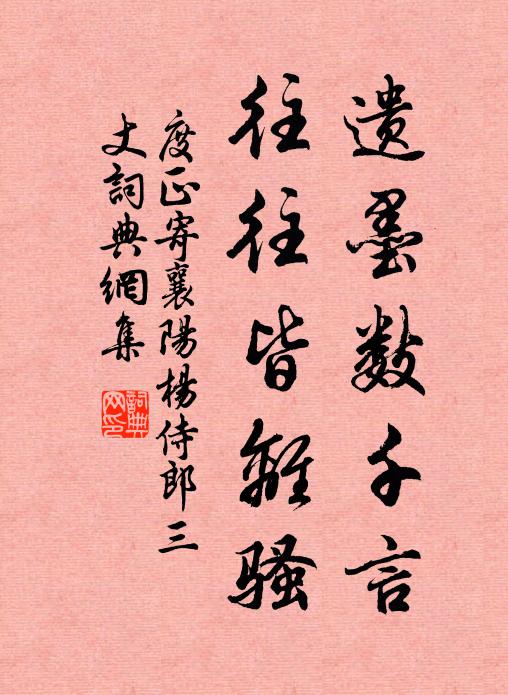 遗墨数千言
往往皆離騷
度正寄襄陽楊侍郎三
丈詞典網集
詞典
网印